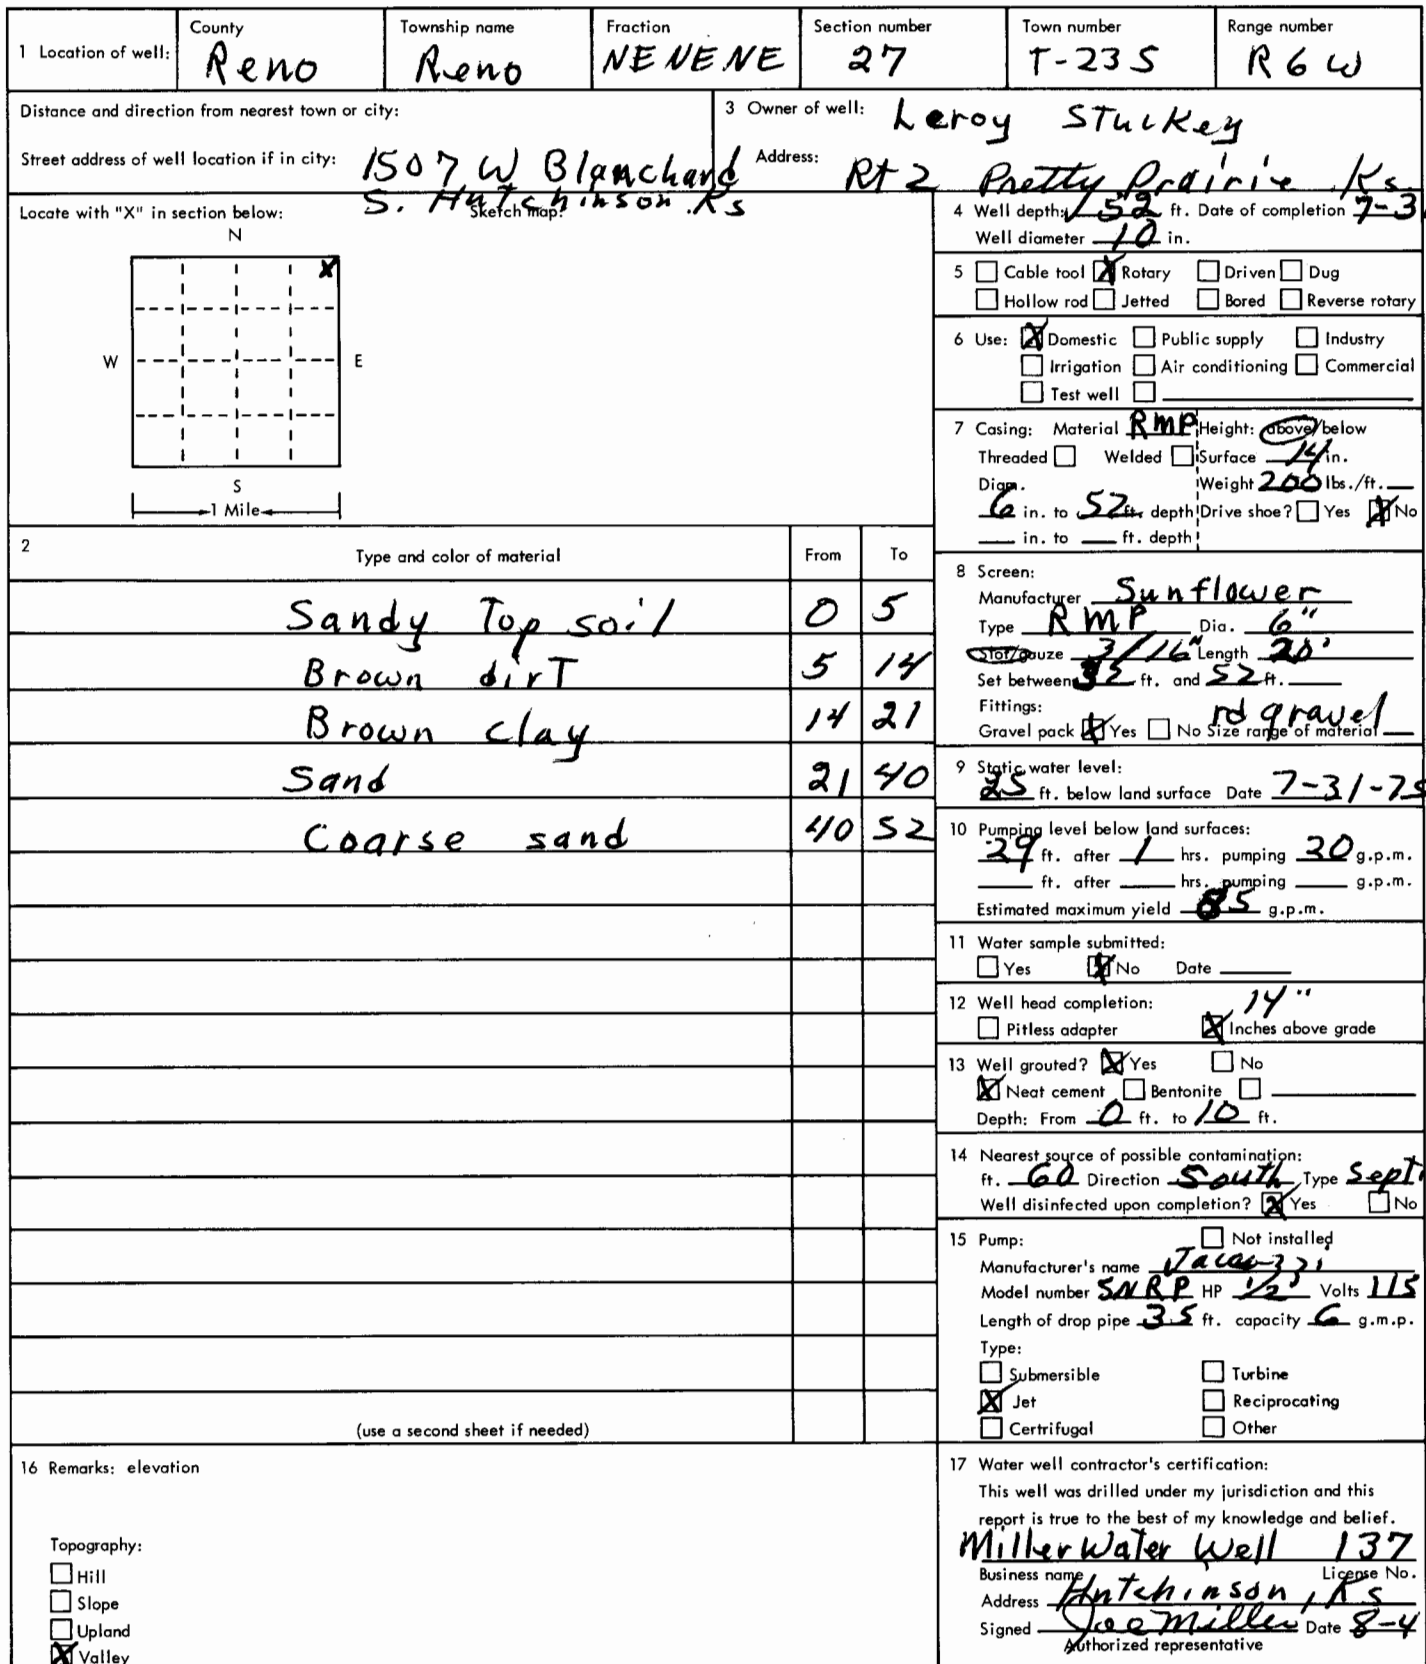 1 Location of well: County Reno Township name Reno Fraction NE NE NE Section number 27 Town number T-23 S Range number R 6 W
Distance and direction from nearest town or city:
3 Owner of well: Leroy Stuckey
Street address of well location if in city: 1507 W Blanchard
S. Hutchinson Ks
Address: Rt 2 Pretty Prairie Ks
Locate with "X" in section below: Sketch map:
N
X
W E
S
1 Mile
4 Well depth: 52 ft. Date of completion 7-3
Well diameter 10 in.
5 Cable tool X Rotary Driven Dug
Hollow rod Jetted Bored Reverse rotary
6 Use: X Domestic Public supply Industry
Irrigation Air conditioning Commercial
Test well
7 Casing: Material RMP Height: above/below
Threaded Welded Surface 14 in.
Diam. Weight 200 lbs./ft.
6 in. to 52 ft. depth Drive shoe? Yes X No
in. to ft. depth
2 Type and color of material From To
Sandy Top soil 0 5
Brown dirT 5 14
Brown clay 14 21
Sand 21 40
Coarse sand 40 52
(use a second sheet if needed)
8 Screen:
Manufacturer Sunflower
Type RMP Dia. 6"
Slot/gauze 3/16" Length 20'
Set between 32 ft. and 52 ft.
Fittings:
Gravel pack X Yes No Size range of material rd gravel
9 Static water level:
25 ft. below land surface Date 7-31-75
10 Pumping level below land surfaces:
29 ft. after 1 hrs. pumping g.p.m.
ft. after hrs. pumping g.p.m.
Estimated maximum yield 85 g.p.m.
11 Water sample submitted:
Yes X No Date
12 Well head completion: 14"
Pitless adapter X Inches above grade
13 Well grouted? X Yes No
X Neat cement Bentonite
Depth: From 0 ft. to 10 ft.
14 Nearest source of possible contamination:
ft. 60 Direction South Type Septi
Well disinfected upon completion? X Yes No
15 Pump: Not installed
Manufacturer's name Jacuzzi
Model number SNRP HP 1/2 Volts 115
Length of drop pipe 35 ft. capacity 6 g.m.p.
Type:
Submersible Turbine
X Jet Reciprocating
Certrifugal Other
16 Remarks: elevation
Topography:
Hill
Slope
Upland
X Valley
17 Water well contractor's certification:
This well was drilled under my jurisdiction and this
report is true to the best of my knowledge and belief.
Miller Water Well 137
Business name License No.
Address Hutchinson, Ks
Signed Joe Miller Date 8-4
Authorized representative